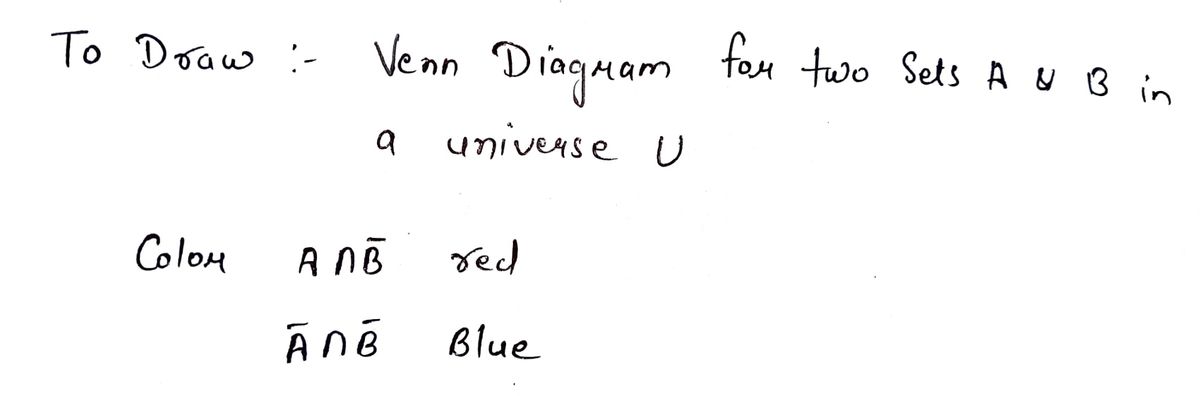 To Draw :- Venn Diagram for two Sets A & B in
a universe U
Color A ∩ B̄ red
Ā ∩ B̄ Blue